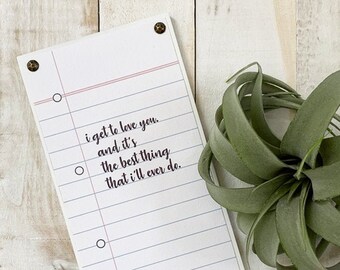 i get to love you.
and it's
the best thing
that i'll ever do.